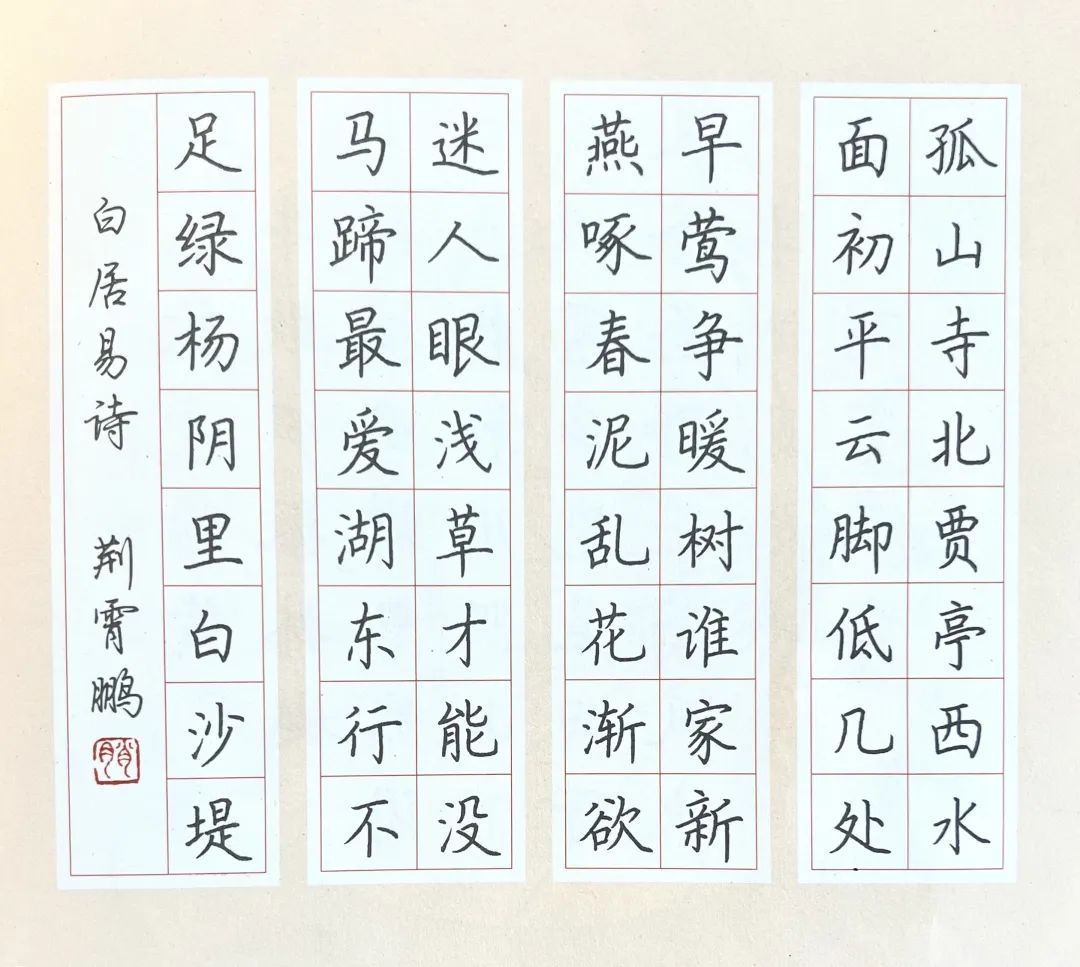 孤山寺北贾亭西水
面初平云脚低几处
早莺争暖树谁家新
燕啄春泥乱花渐欲
迷人眼浅草才能没
马蹄最爱湖东行不
足绿杨阴里白沙堤
白居易诗 荆霄鹏